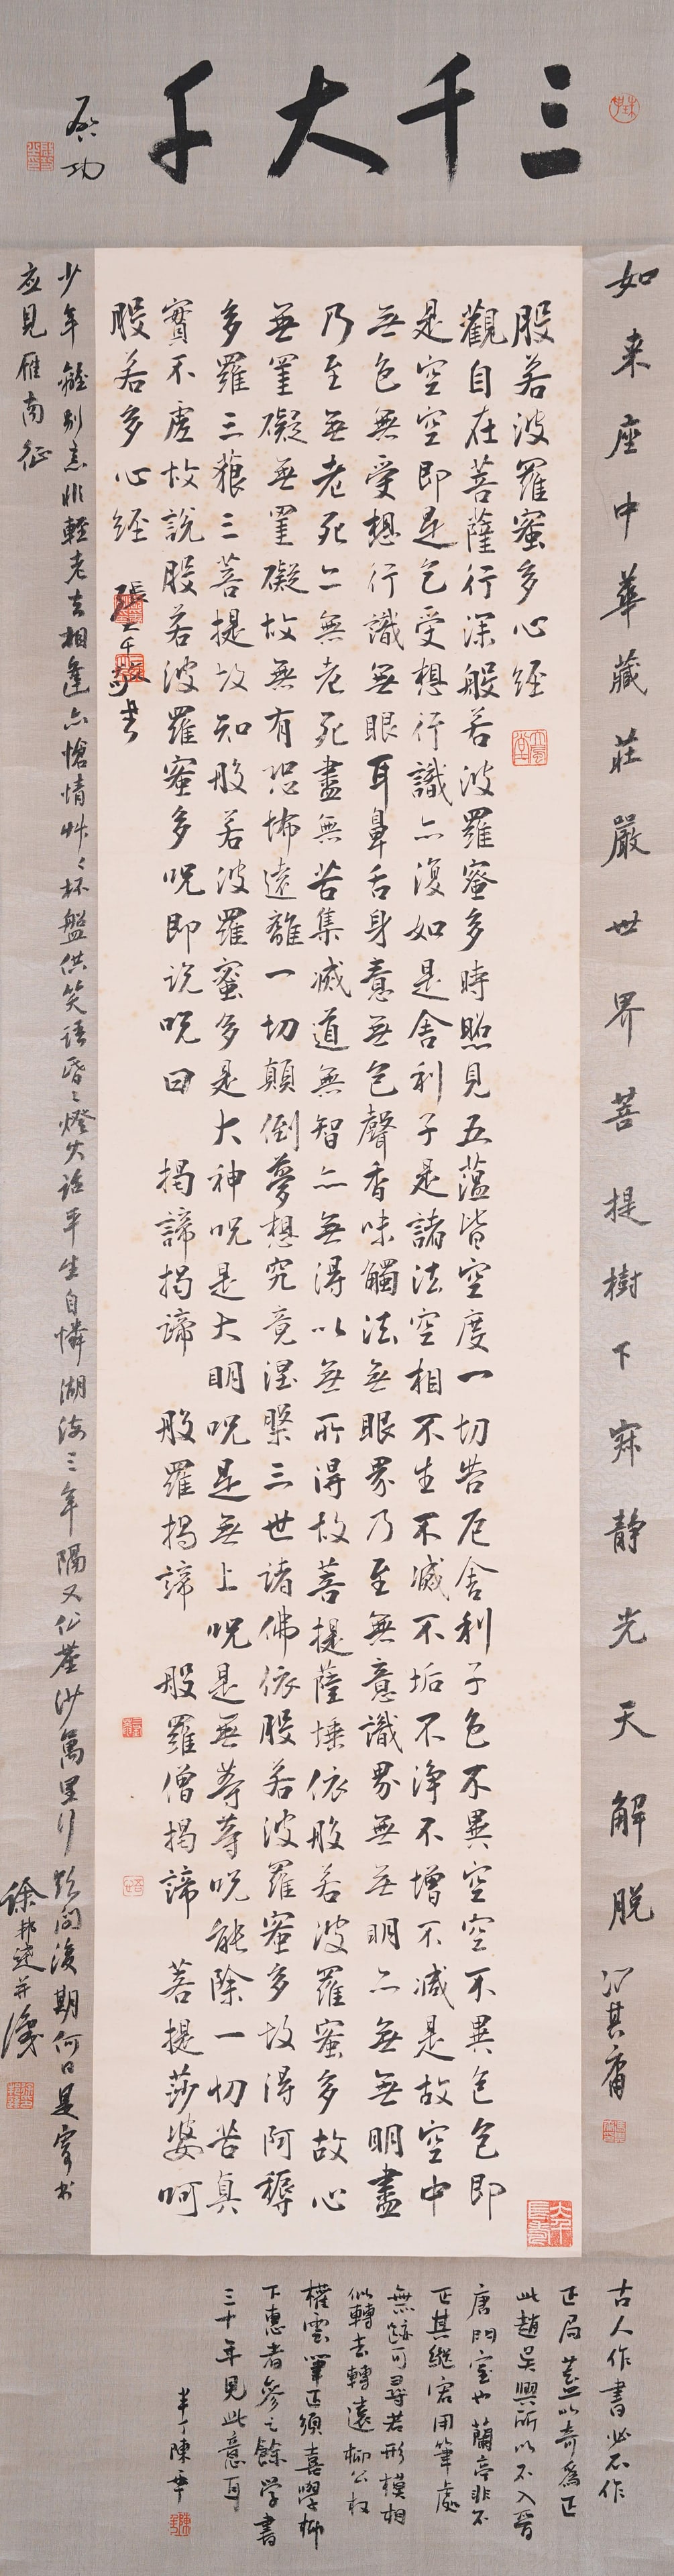 三千大千
啟功
如来座中華藏莊嚴世界菩提樹下寂靜光天解脱
馮其庸
般若波羅蜜多心經
觀自在菩薩行深般若波羅蜜多時照見五蘊皆空度一切苦厄舍利子色不異空空不異色色即
是空空即是色受想行識亦復如是舍利子是諸法空相不生不滅不垢不淨不增不減是故空中
無色無受想行識無眼耳鼻舌身意無色聲香味觸法無眼界乃至無意識界無無明亦無無明盡
乃至無老死亦無老死盡無苦集滅道無智亦無得以無所得故菩提薩埵依般若波羅蜜多故心
無罣礙無罣礙故無有恐怖遠離一切顛倒夢想究竟涅槃三世諸佛依般若波羅蜜多故得阿耨
多羅三藐三菩提故知般若波羅蜜多是大神呪是大明呪是無上呪是無等等呪能除一切苦真
實不虛故說般若波羅蜜多呪即説呪曰 揭諦揭諦 般羅揭諦 般羅僧揭諦 菩提莎婆呵
般若多心經
張大千敬書
少年離别意非輕老去相逢亦愴情草々杯盤供笑語昏々燈火話平生自憐湖海三年隔又作塵沙萬里行欲問後期何日是寄書
應見雁南征
徐邦達并識
古人作書必不作
正局蓋以奇為正
此趙吳興所以不入晉
唐門室也蘭亭非不
正其縱宕用筆處
無跡可尋若形模相
似轉去轉遠柳公权
權云筆正須善學柳
下惠者參之餘学書
三十年見此意耳
半丁陳年